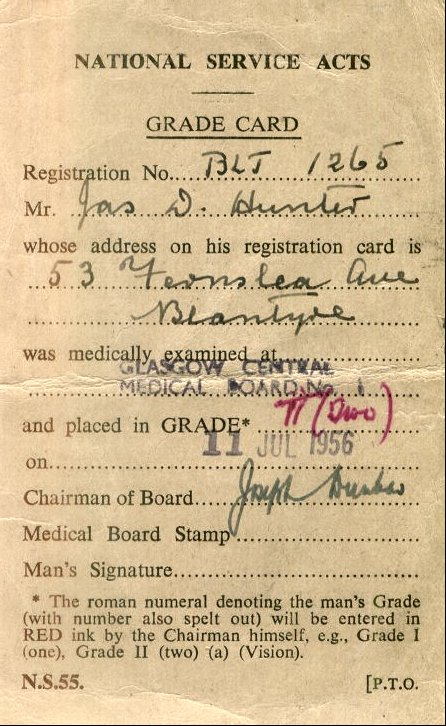 NATIONAL SERVICE ACTS
GRADE CARD
Registration No. BLT 1265
Mr. Jas D. Hunter
whose address on his registration card is
53 Fernslea Ave
Blantyre
was medically examined at
GLASGOW CENTRAL
MEDICAL BOARD No. 1
and placed in GRADE* II (Two)
on 11 JUL 1956
Chairman of Board Joseph Dunbar
Medical Board Stamp
Man's Signature
* The roman numeral denoting the man's Grade
(with number also spelt out) will be entered in
RED ink by the Chairman himself, e.g., Grade I
(one), Grade II (two) (a) (Vision).
N.S.55. [P.T.O.